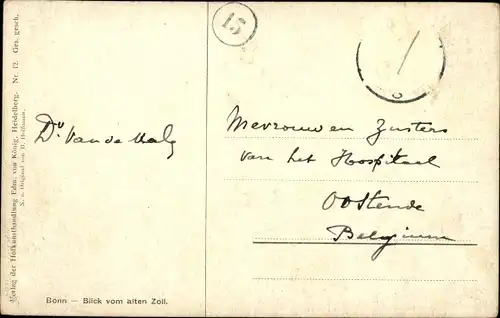 51
Dr Van de Walg
Mevrouw en Zusters
van het Hoospitaal
Oostende
Belgium
Bonn — Blick vom alten Zoll.
Verlag der Hofkunsthandlung Edm. von König, Heidelberg. Nr. 12. Ges. gesch.
N. e. Original von H. Hoffmann.